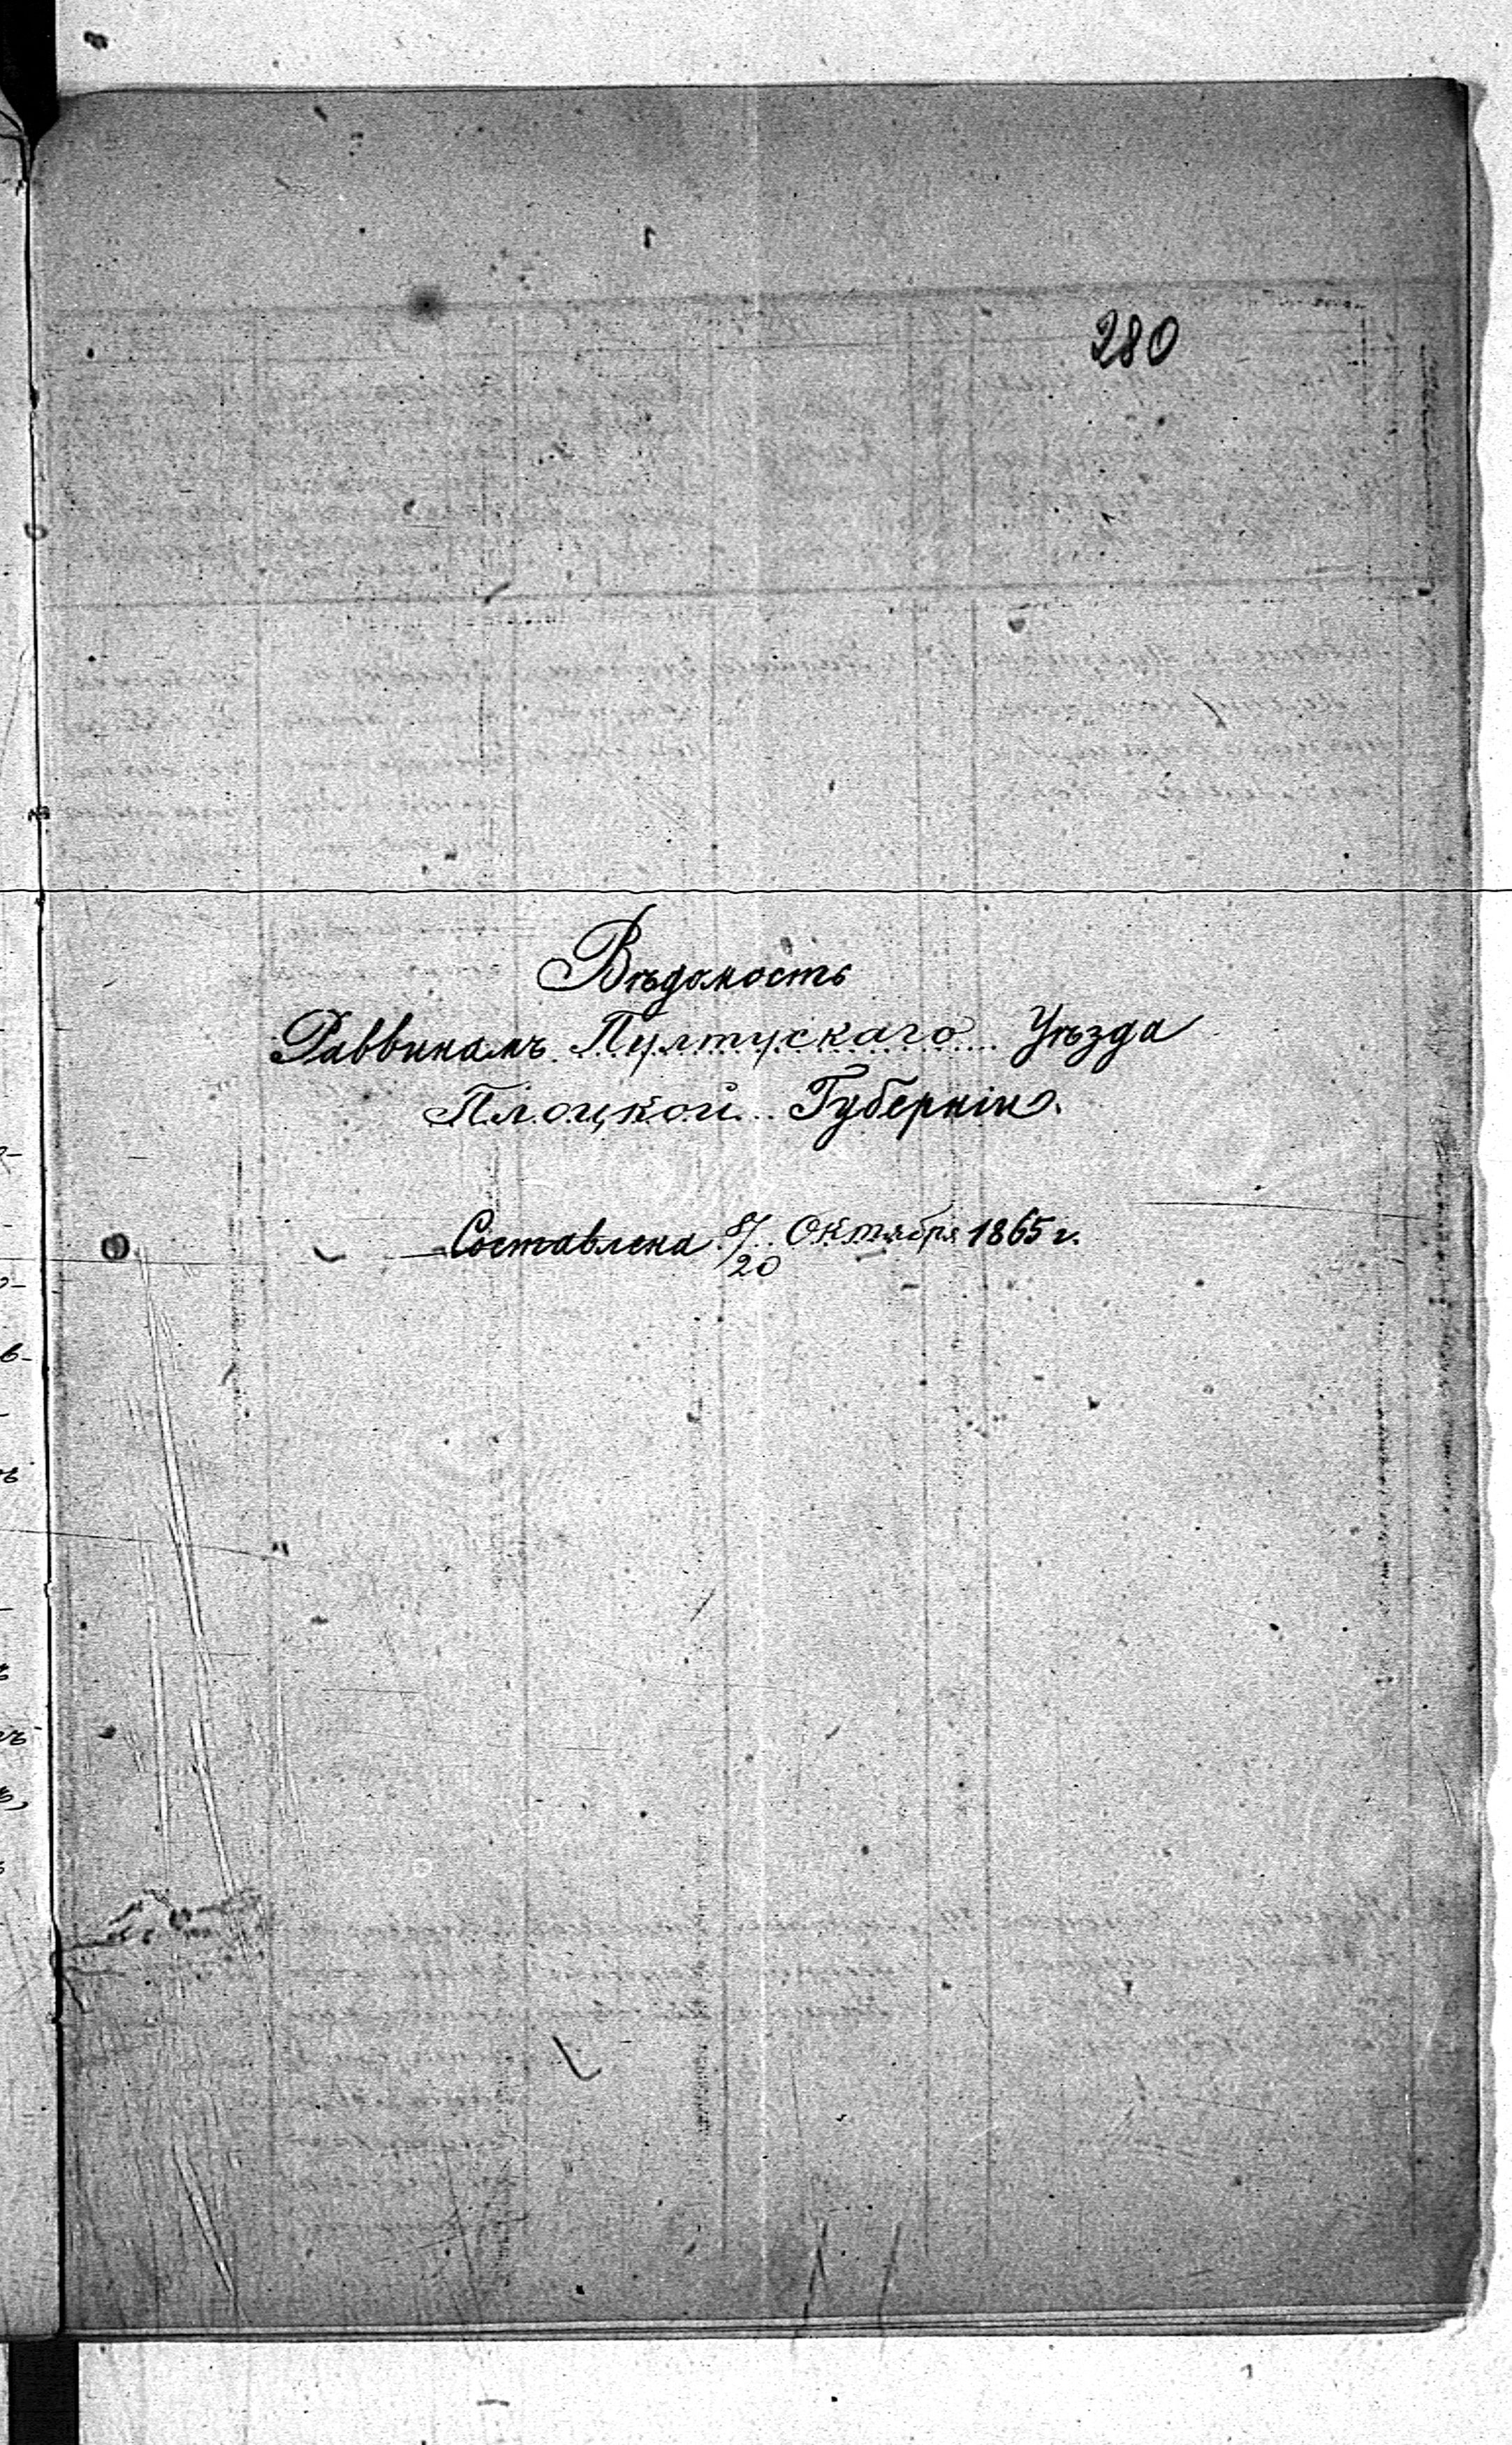 280
Вѣдомость
Раввинамъ Пултускаго Уѣзда
Плоцкой Губерніи.
Составлена 8/20 Октября 1865 г.